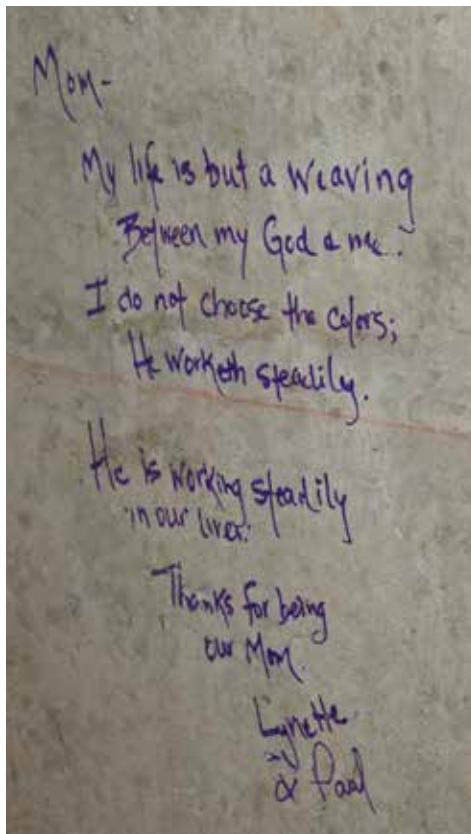 Mom-
My life is but a weaving
Between my God & me.
I do not choose the colors;
He worketh steadily.
He is working steadily
in our lives.
Thanks for being
our Mom.
Lynette
& Paul